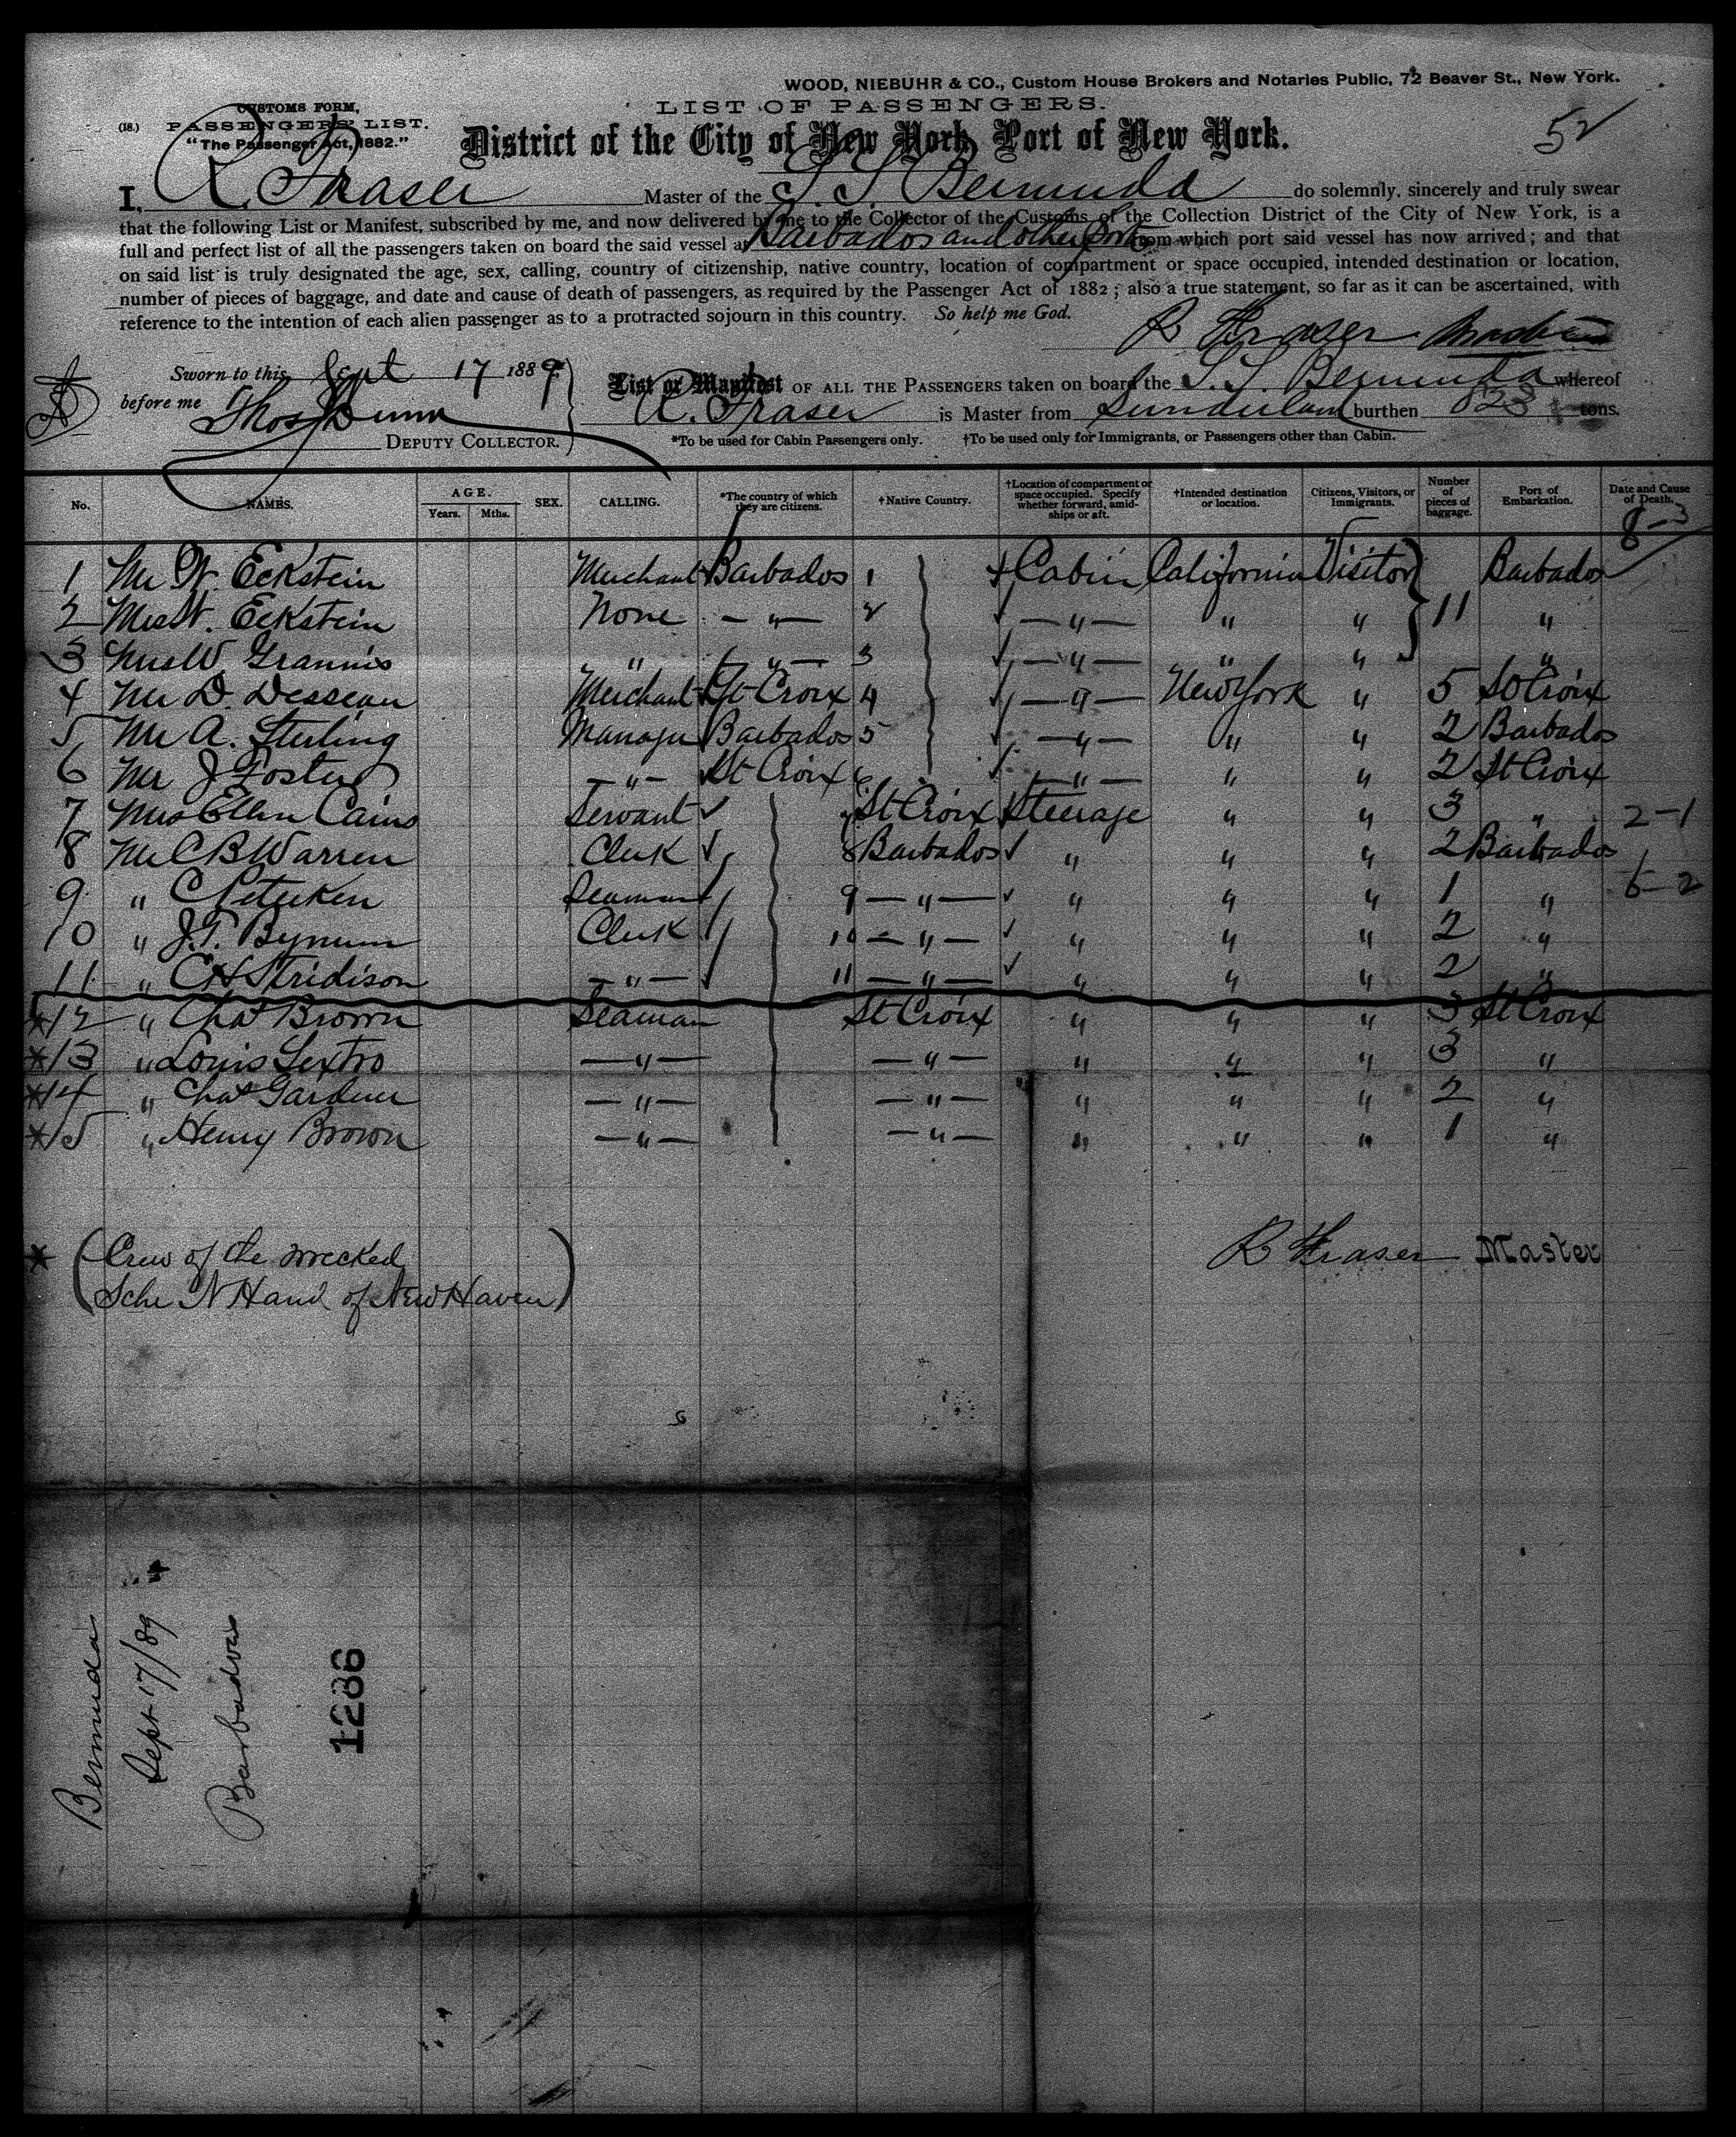 WOOD, NIEBUHR & CO., Custom House Brokers and Notaries Public, 72 Beaver St., New York.
CUSTOMS FORM,
LIST OF PASSENGERS.
(18.) PASSENGERS' LIST.
"The Passenger Act, 1882."
District of the City of New York, Port of New York.
52
I, R. Fraser Master of the S. S. Bermuda do solemnly, sincerely and truly swear
that the following List or Manifest, subscribed by me, and now delivered by me to the Collector of the Customs of the Collection District of the City of New York, is a
full and perfect list of all the passengers taken on board the said vessel at Barbados and other Ports from which port said vessel has now arrived; and that
on said list is truly designated the age, sex, calling, country of citizenship, native country, location of compartment or space occupied, intended destination or location,
number of pieces of baggage, and date and cause of death of passengers, as required by the Passenger Act of 1882; also a true statement, so far as it can be ascertained, with
reference to the intention of each alien passenger as to a protracted sojourn in this country. So help me God.
R Fraser Master
Sworn to this Sept 17 1889
before me Thos Dunn
DEPUTY COLLECTOR.
List or Manifest OF ALL THE PASSENGERS taken on board the S. S. Bermuda whereof
R. Fraser is Master from Sunderland burthen 823 tons.
*To be used for Cabin Passengers only. †To be used only for Immigrants, or Passengers other than Cabin.
No. NAMES. AGE. Years. Mths. SEX. CALLING. *The country of which they are citizens. †Native Country. †Location of compartment or space occupied. Specify whether forward, amidships or aft. †Intended destination or location. Citizens, Visitors, or Immigrants. Number of pieces of baggage. Port of Embarkation. Date and Cause of Death.
8-3
1 Mr W. Eckstein Merchant Barbados 1 Cabin California Visitor Barbados
2 Mrs W. Eckstein None - " - 2 - " - " " 11 "
3 Mrs W. Grannis " - " - 3 - " - " " "
4 Mr D. Dessean Merchant St Croix 4 - " - New York " 5 St Croix
5 Mr A. Sterling Manager Barbados 5 - " - " " 2 Barbados
6 Mr J Foster - " - St Croix 6 - " - " " 2 St Croix
7 Mrs Ellen Cains Servant 7 St Croix Steerage " " 3 " 2-1
8 Mr C B Warren Clerk 8 Barbados " " " 2 Barbados
9 " C Peterken Seaman 9 - " - " " " 1 " 6-2
10 " J. T. Bynum Clerk 10 - " - " " " 2 "
11 " C H Stridison - " - 11 - " - " " " 2 "
*12 " Chas Brown Seaman St Croix " " " 3 St Croix
*13 " Louis Sextro - " - - " - " " " 3 "
*14 " Chas Gardner - " - - " - " " " 2 "
*15 " Henry Brown - " - - " - " " " 1 "
* (Crew of the wrecked
Schr N Hand of New Haven)
R Fraser Master
Bermuda
Sept 17/89
Barbados
1286